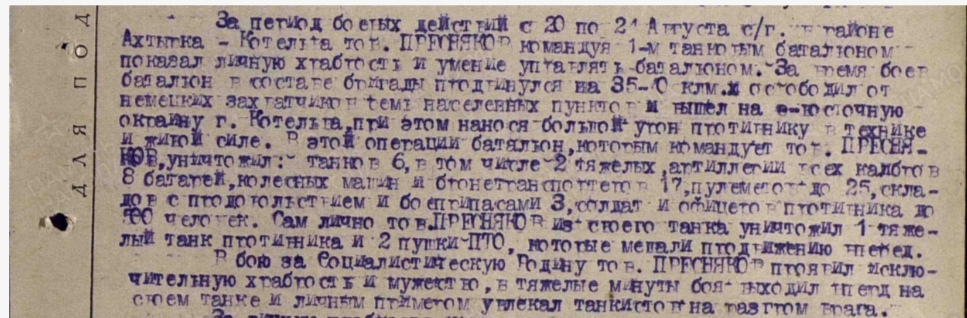 За период боевых действий с 20 по 21 Августа с/г. в районе
Ахтырка - Котельва тов. ПРЕСНЯКОВ командуя 1-м танковым баталионом
показал личную храбрость и умение управлять баталионом. За время боев
баталион в составе бригады продвинулся на 35- клм. и освободил от
немецких захватчиков семь населенных пунктов и вышел на в-восточную
окраину г. Котельва, при этом нанося большой урон противнику в технике
и живой силе. В этой операции батальон, которым командует тов. ПРЕСНЯ-
КОВ, уничтожил:- танков 6, в том числе 2 тяжелых, артиллерии всех калибров
8 батарей, колесных машин и бронетранспортеров 17, пулеметов до 25, скла-
дов с продовольствием и боеприпасами 3, солдат и офицеров противника до
человек. Сам лично тов. ПРЕСНЯКОВ из своего танка уничтожил 1 тяже-
лый танк противника и 2 пушки-ПТО, которые мешали продвижению вперед.
В бою за Социалистическую Родину тов. ПРЕСНЯКОВ проявил исклю-
чительную храбрость и мужество, в тяжелые минуты боя выходил вперд на
своем танке и личным примером увлекал танкистов на разгром врага.
За
ДЛЯ ПОД